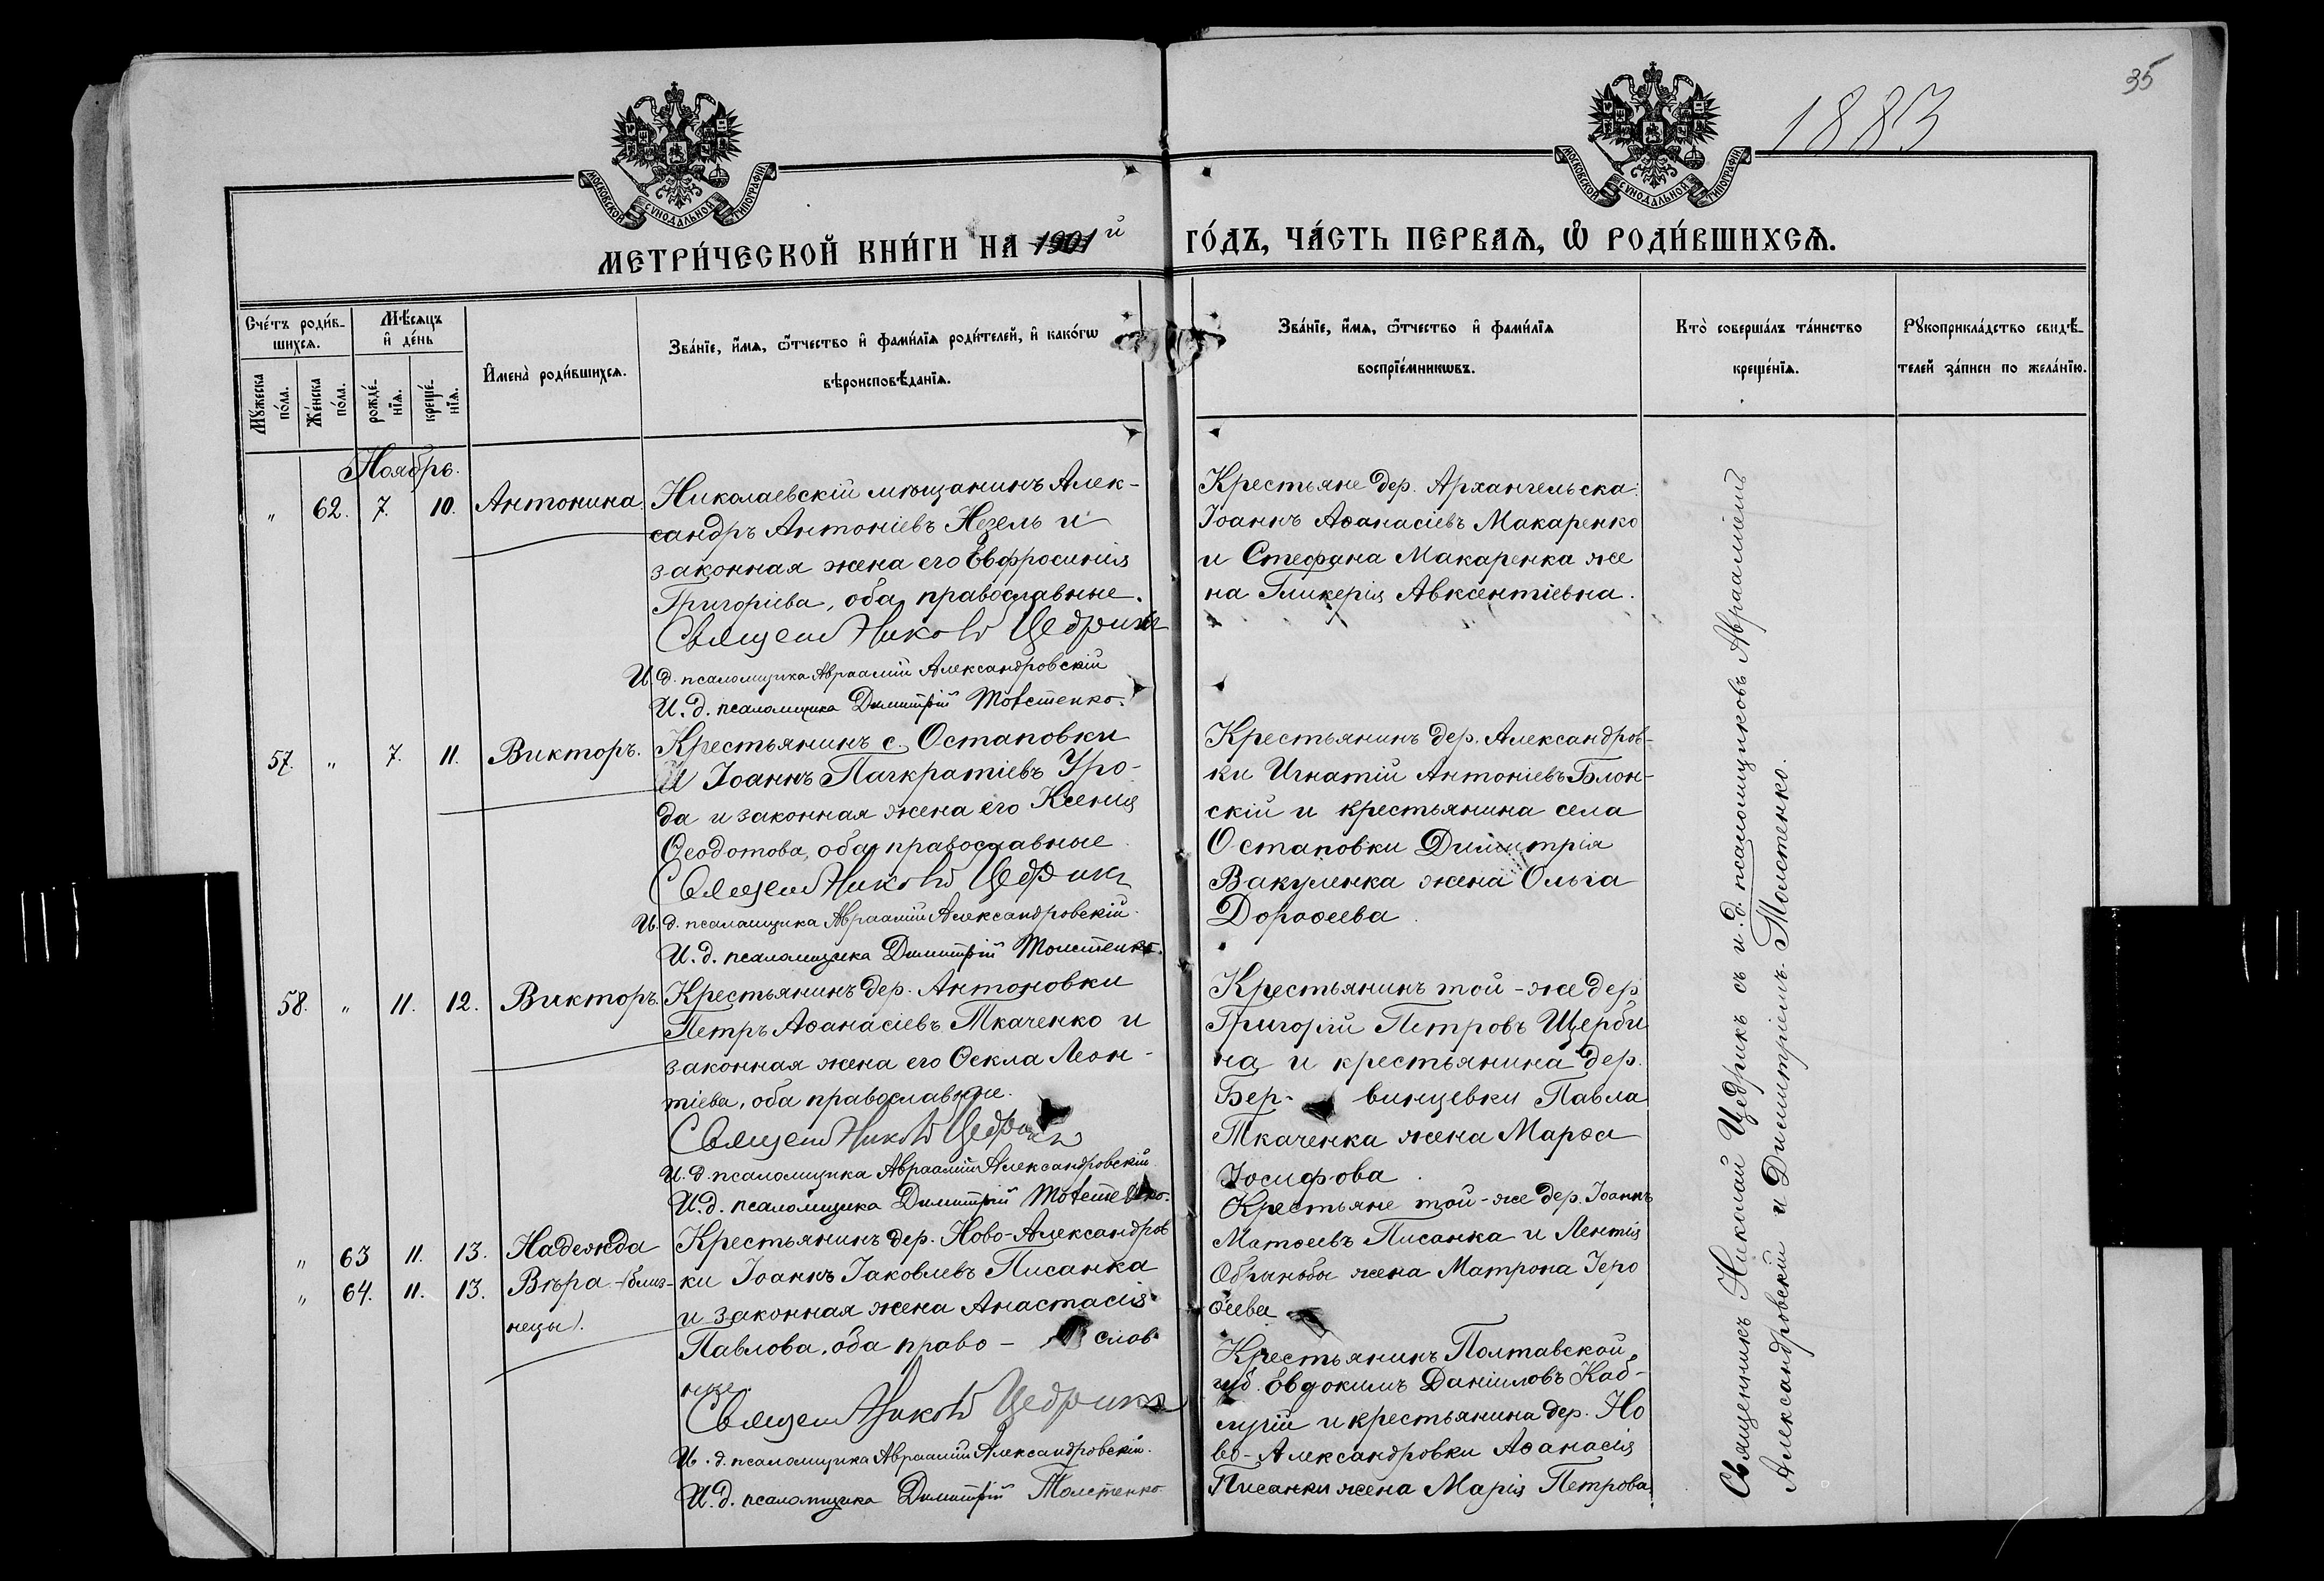 35
1883
МОСКОВСКОЙ СѴНОДАЛЬНОЙ ТИПОГРАФІИ
МОСКОВСКОЙ СѴНОДАЛЬНОЙ ТИПОГРАФІИ
МЕТРИ́ЧЕСКОЙ КНИ́ГИ НА 1901й ГО́ДЪ, ЧА́СТЬ ПЕРВАѦ, Ѡ҆ РОДИ́ВШИХСѦ.
Сче́тъ роди́в-
шихсѧ.
Мѣ́сѧцъ
и҆ де́нь
Мꙋ́жеска
по́ла.
Же́нска
по́ла.
рожде́-
нїѧ.
креще́-
нїѧ.
И҆мена̀ роди́вшихсѧ.
Зва́нїе, и҆́мѧ, ѻ҆́тчество и҆ фами́лїѧ роди́телей, и҆ како́гѡ
вѣроисповѣ́данїѧ.
Зва́нїе, и҆́мѧ, ѻ҆́тчество и҆ фами́лїѧ
воспрїе́мникѡвъ.
Кто̀ соверша́лъ та́инство
креще́нїѧ.
Рꙋкоприкла́дство свидѣ́-
телей за́писи по жела́нїю.
Ноябрь.
" 62. 7. 10. Антонина.
Николаевскій мѣщанинъ Алек-
сандръ Антоніевъ Незель и
законная жена его Евфросинія
Григоріева, оба православные.
Священ Никол Цедрикъ
И. д. псаломщика Авраамій Александровскій
И. д. псаломщика Димитрій Толстенко.
Крестьяне дер. Архангельска
Іоаннъ Аѳанасіевъ Макаренко
и Стефана Макаренка же
на Гликерія Авксентіевна.
57. " 7. 11. Викторъ.
Крестьянинъ с. Остановки
Іоаннъ Панкратіевъ Уро-
да и законная жена его Ксенія
Ѳеодотова, оба православные
Священ Никол Цедрикъ
И. д. псаломщика Авраамій Александровскій.
И. д. псаломщика Димитрій Толстенко.
Крестьянинъ дер. Александров-
ки Игнатій Антоніевъ Блон-
скій и крестьянина села
Остановки Димитрія
Вакуленка жена Ольга
Дороѳеева.
58. " 11. 12. Викторъ.
Крестьянинъ дер. Антоновки
Петръ Аѳанасіевъ Ткаченко и
законная жена его Ѳекла Леон-
тіева, оба православные.
Священ Никол Цедрикъ
И. д. псаломщика Авраамій Александровскій
И. д. псаломщика Димитрій Толстенко.
Крестьянинъ той-же дер
Григорій Петровъ Щерби
на и крестьянина дер.
Бер- винцевки Павла
Ткаченка жена Марѳа
Іосифова.
" 63 11. 13. Надежда
" 64. 11. 13. Вѣра (близ-
нецы).
Крестьянинъ дер. Ново-Александров
ки Іоаннъ Іаковлевъ Писанка
и законная жена Анастасія
Павлова, оба право- слав
ные.
Священ Никол Цедрикъ
И. д. псаломщика Авраамій Александровскій.
И. д. псаломщика Димитрій Толстенко
Крестьяне той-же дер. Іоаннъ
Матѳеевъ Писанка и
жена Матрона Іеро
ѳеева
Крестьянинъ Полтавской
губ. Евдокимъ Даніиловъ Каб-
лучій и крестьянина дер. Но
во-Александровки Аѳанасія
Писанки жена Марія Петрова
Священникъ Николай Цедрикъ съ и. д. псаломщиковъ Авраміемъ
Александровскій и Димитріемъ Толстенко.